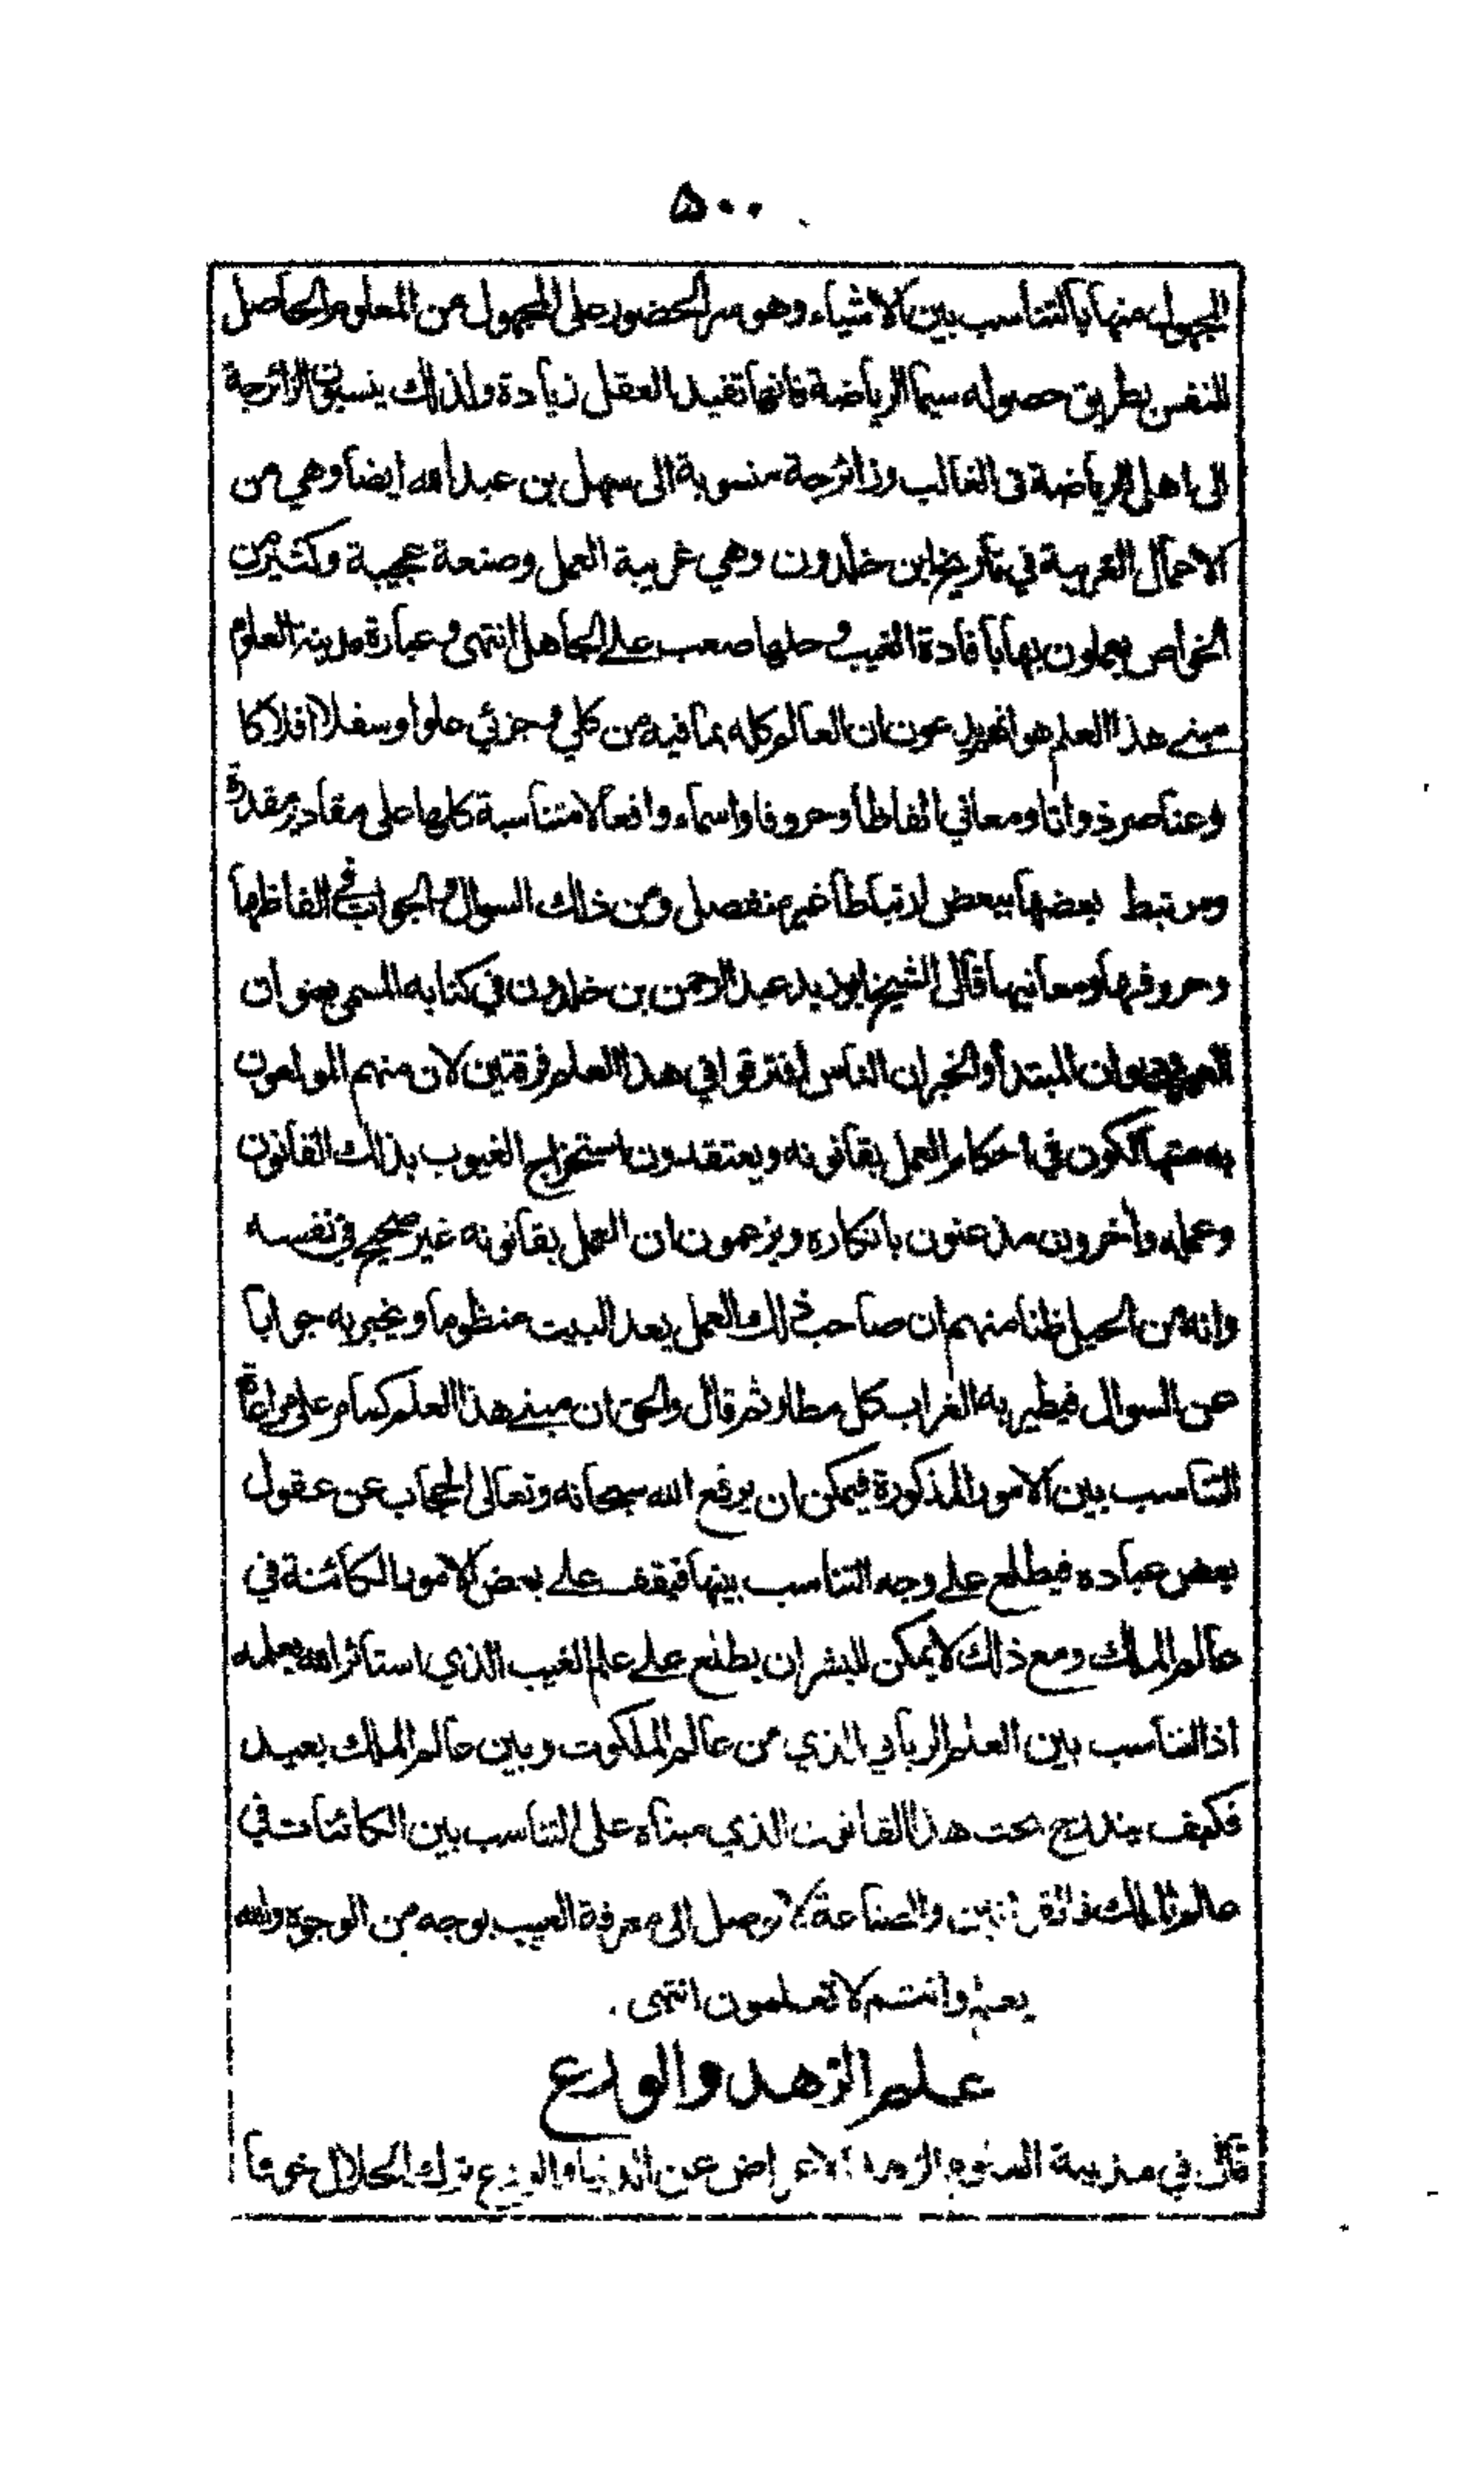 ٥٠٠
المجهول منها بالتناسب بين الاشياء وهو سر الحضور على المجهول من المعلوم الحاصل
للنفس بطريق حصوله سيما الرياضة فانها تفيد العقل زيادة ولذلك ينسبون الزائرجة
الى اهل الرياضة فى الغالب وزائرجة منسوبة الى سهل بن عبد الله ايضا وهي من
الاعمال الغريبة في تاريخ ابن خلدون وهي غريبة العمل وصنعة عجيبة وكثير من
الخواص يعملون بها بافادة الغيب و حلها صعب على الجاهل انتهى وعبارة مدينة العلوم
مبنى هذا العلم هو انهم يدعون ان العالم كله بما فيه من كلي و جزئي علوا وسفلا افلاكا
وعناصر ذواتا ومعاني الفاظا وحروفا واسماء وافعالا متناسبة كلها على مقادير مقدرة
ومرتبط بعضها ببعض ارتباطا غير منفصل ومن ذلك السوال والجواب في الفاظها
وحروفها ومعانيها قال الشيخ ابو زيد عبد الرحمن بن خلدون في كتابه المسمى بعنوان
العبر وديوان المبتدأ والخبر ان الناس افترقوا في هذا العلم فرقتين لان منهم المولعون
به منهمكون في احكام العمل بقانونه ويعتقدون استخراج الغيوب بذلك القانون
وعمله وأخرون مذعنون بانكاره ويزعمون ان العمل بقانونه غير صحيح في نفسه
وانه من الحيل ظنا منهم ان صاحب ذلك العمل يعد البيت منظوما ويخبر به جوابا
عن السوال فيطير به الغراب كل مطار ثم قال والحق ان مبنى هذا العلم كما مر على مراعاة
التناسب بين الامور المذكورة فيمكن ان يرفع الله سبحانه وتعالى الحجاب عن عقول
بعض عباده فيطلع على وجه التناسب بينها فيقف على بعض الامور الكائنة في
عالم الملك ومع ذلك لا يمكن للبشر ان يطلع على علم الغيب الذي استاثر الله بعلمه
اذ التناسب بين العلم الرباني الذي من عالم الملكوت وبين عالم الملك بعيد
فكيف يندرج تحت هذا القانون الذي مبناه على التناسب بين الكائنات في
عالم الملك والصناعة لا توصل الى معرفة الغيب بوجه من الوجوه والله
يعلم وانتم لا تعلمون انتهى .
علم الزهد والورع
قال في مدينة العلوم الزهد الاعراض عن الدنيا والورع ترك الحلال خوفا